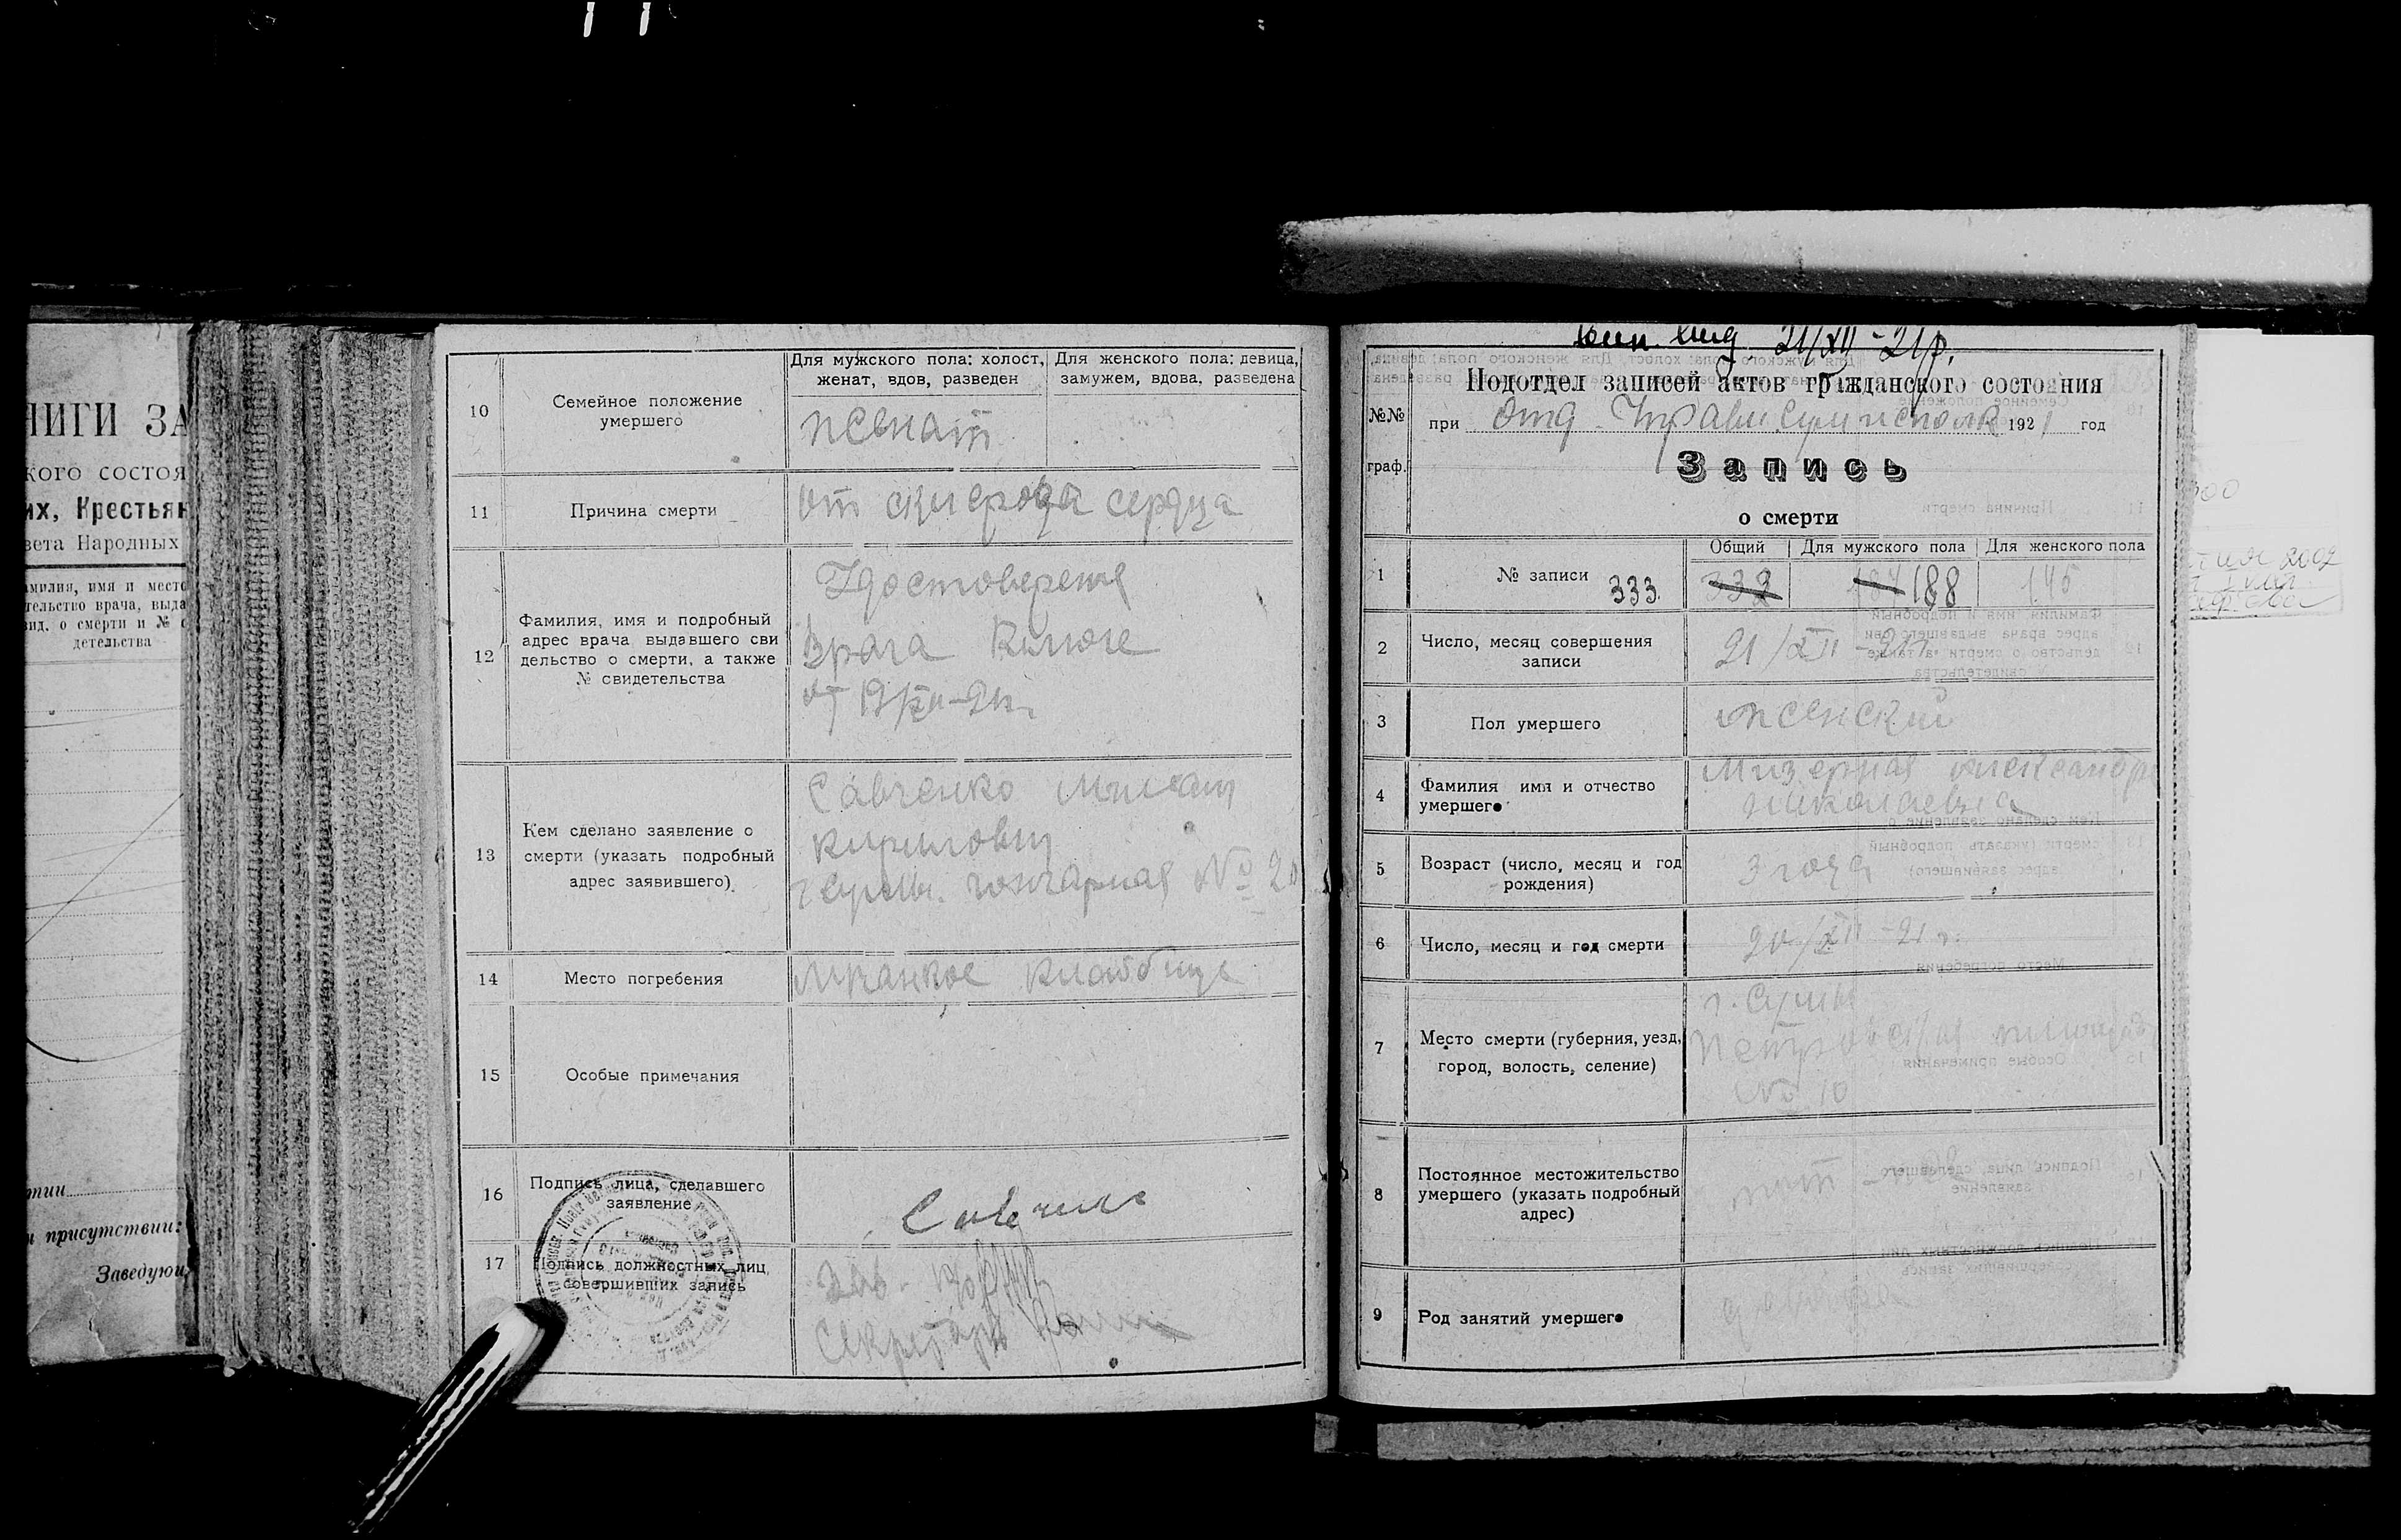 ЛИГИ ЗА
кого состоя
их, Крестьян
вета Народных
амилия, имя и место
тельство врача, выда
ид. о смерти и №
детельства
присутствии:
Заведую
10
Семейное положение
умершего
Для мужского пола: холост,
женат, вдов, разведен
Для женского пола: девица,
замужем, вдова, разведена
женат
11
Причина смерти
от склероза сердца
12
Фамилия, имя и подробный
адрес врача, выдавшего сви
дельство о смерти, а также
№ свидетельства
Удостоверение
врача
от 19/XII-21г.
13
Кем сделано заявление о
смерти (указать подробный
адрес заявившего).
Савченко Михаил
Кирилович
г Сумы. Гончарная № 20
14
Место погребения
кладбище
15
Особые примечания
16
Подпись лица, сделавшего
заявление
Савченко
17
Подпись должностных лиц,
совершивших запись
Зав.
Секретарь
21/XII - 21р.
№№
граф.
Подотдел записей актов гражданского состояния
при Отд. Управ Сумисполк 1921 год
Запись
о смерти
1
№ записи
333
Общий
Для мужского пола
Для женского пола
332
187 188
145
2
Число, месяц совершения
записи
21/XII-21г
3
Пол умершего
женский
4
Фамилия имя и отчество
умершего
Мизерная Александра
Николаевна
5
Возраст (число, месяц и год
рождения)
3 года
6
Число, месяц и год смерти
20/XII-21 г.
7
Место смерти (губерния, уезд,
город, волость, селение)
г. Сумы
№ 10
8
Постоянное местожительство
умершего (указать подробный
адрес)
9
Род занятий умершего